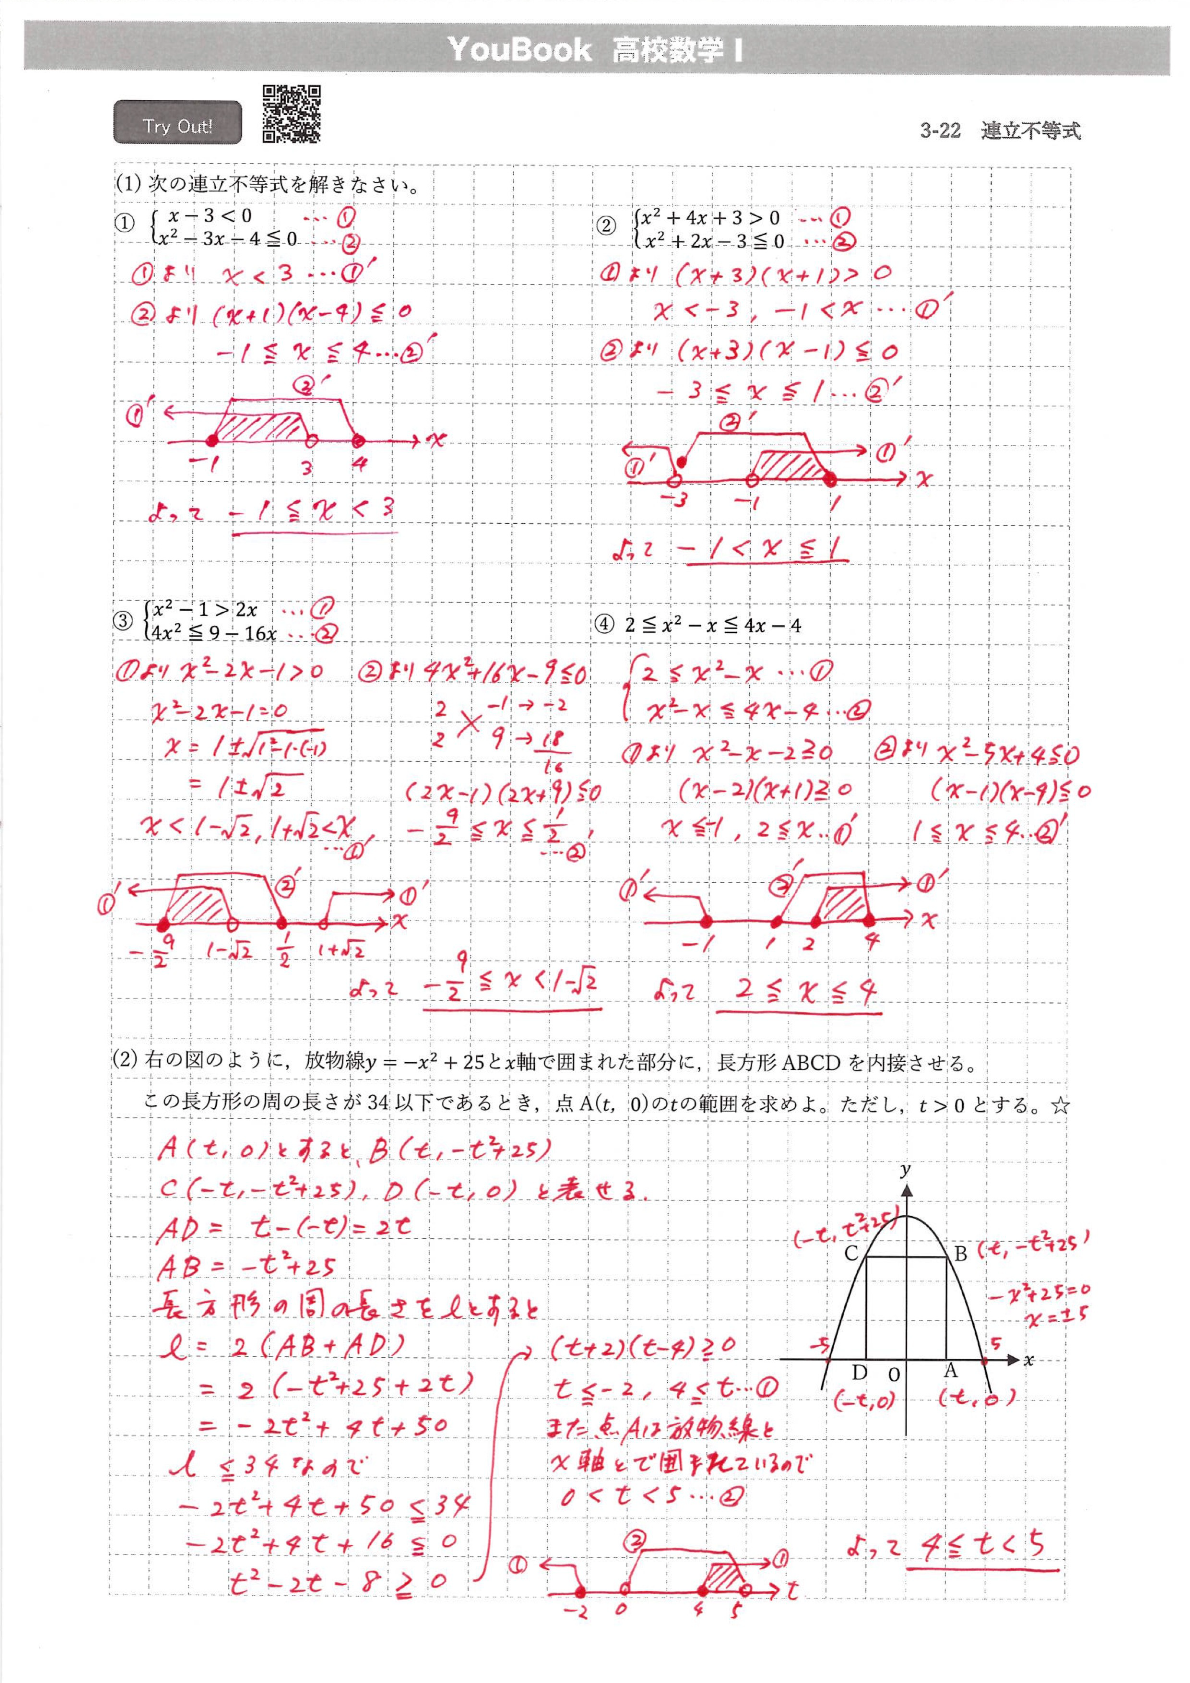 YouBook 高校数学 I
Try Out!
3-22 連立不等式
(1) 次の連立不等式を解きなさい。
① { x − 3 < 0 … ①
x² − 3x − 4 ≦ 0 … ②
①より x < 3 … ①′
②より (x+1)(x−4) ≦ 0
−1 ≦ x ≦ 4 … ②′
②′
①′
x
−1 3 4
よって −1 ≦ x < 3
② { x² + 4x + 3 > 0 … ①
x² + 2x − 3 ≦ 0 … ②
①より (x+3)(x+1) > 0
x < −3 , −1 < x … ①′
②より (x+3)(x−1) ≦ 0
−3 ≦ x ≦ 1 … ②′
②′
①′ ①′
x
−3 −1 1
よって −1 < x ≦ 1
③ { x² − 1 > 2x … ①
4x² ≦ 9 − 16x … ②
①より x²−2x−1>0
x²−2x−1=0
x = 1±√1²−1·(−1)
= 1±√2
x < 1−√2, 1+√2 < x
… ①′
②より 4x²+16x−9≦0
2 −1 → −2
2 9 → 18
16
(2x−1)(2x+9)≦0
−9/2 ≦ x ≦ 1/2
… ②′
①′ ②′ ①′
x
−9/2 1−√2 1/2 1+√2
よって −9/2 ≦ x < 1−√2
④ 2 ≦ x² − x ≦ 4x − 4
{ 2 ≦ x²−x … ①
x²−x ≦ 4x−4 … ②
①より x²−x−2≧0
(x−2)(x+1)≧0
x ≦−1 , 2 ≦ x … ①′
②より x²−5x+4≦0
(x−1)(x−4)≦0
1 ≦ x ≦ 4 … ②′
①′ ②′ ①′
x
−1 1 2 4
よって 2 ≦ x ≦ 4
(2) 右の図のように，放物線y = −x² + 25とx軸で囲まれた部分に，長方形 ABCD を内接させる。
この長方形の周の長さが 34 以下であるとき，点 A(t, 0)のtの範囲を求めよ。ただし，t > 0 とする。☆
A(t, 0)とすると、B(t, −t²+25)
C(−t, −t²+25), D(−t, 0) と表せる.
AD = t−(−t) = 2t
AB = −t²+25
長方形の周の長さをlとすると
l = 2(AB+AD)
= 2(−t²+25+2t)
= −2t²+4t+50
l ≦34なので
−2t²+4t+50 ≦ 34
−2t²+4t+16 ≦ 0
t²−2t−8 ≧ 0
(t+2)(t−4)≧0
t ≦ −2, 4 ≦ t … ①
また点Aは放物線と
x軸とで囲まれているので
0 < t < 5 … ②
① ② ①
t
−2 0 4 5
よって 4 ≦ t < 5
y
(−t, t²+25)
C B (t, −t²+25)
−x²+25=0
x = ±5
−5 5
x
D O A
(−t, 0) (t, 0)